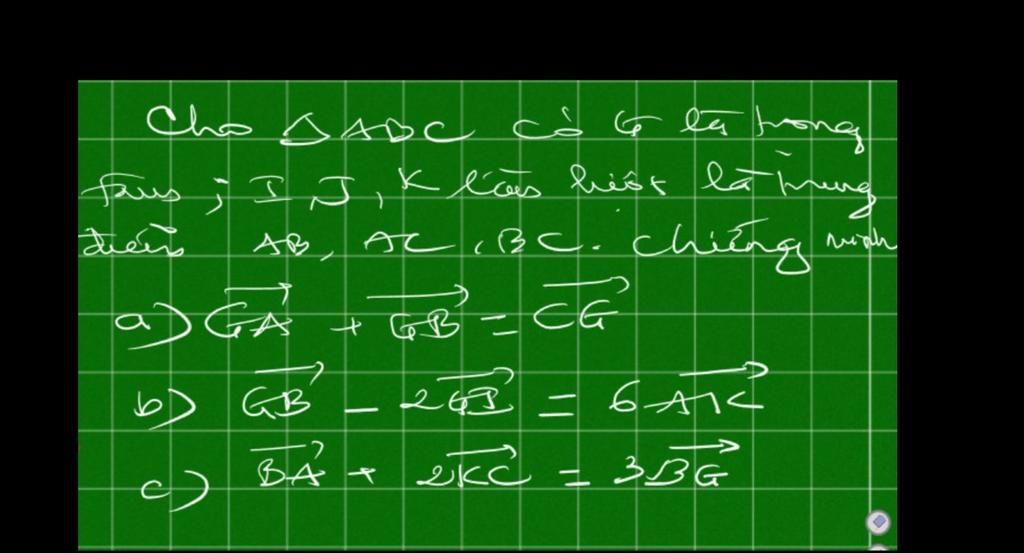 Cho △ABC có G là trọng
tâm ; I, J, K lần lượt là trung
điểm AB, AC, BC. Chứng minh
a) GA + GB = CG
b) GB - 2GI = 6AK
c) BA + 2KC = 3BG